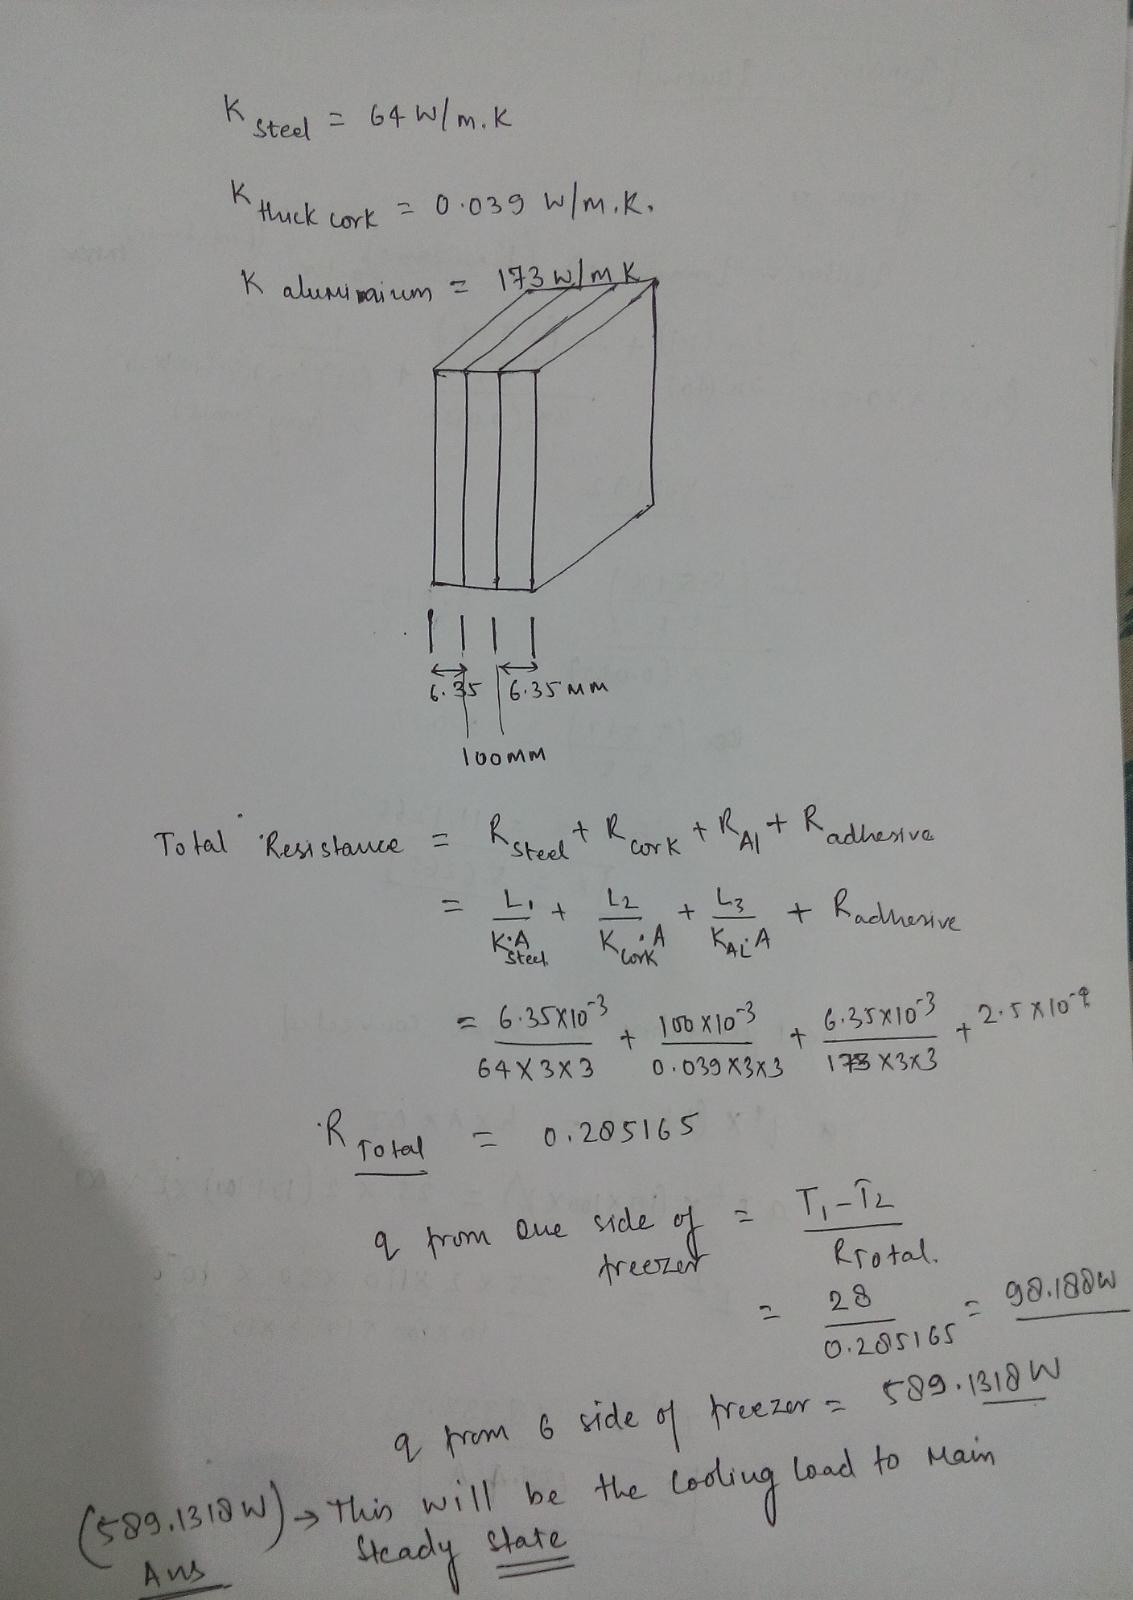 K steel = 64 W/m.K
K thick cork = 0.039 W/m.K.
K aluminium = 173 W/m K
6.35 6.35 mm
100mm
Total Resistance = R steel + R cork + R Al + R adhesive
= L1/K steel.A + L2/K cork.A + L3/K AL.A + R adhesive
= 6.35X10^-3/64X3X3 + 100X10^-3/0.039X3X3 + 6.35X10^-3/173X3X3 + 2.5X10^-4
R Total = 0.285165
q from one side of freezer = T1-T2/R Total.
= 28/0.285165 = 98.188W
q from 6 side of freezer = 589.1318W
(589.1318W) → This will be the cooling load to main
Ans steady state